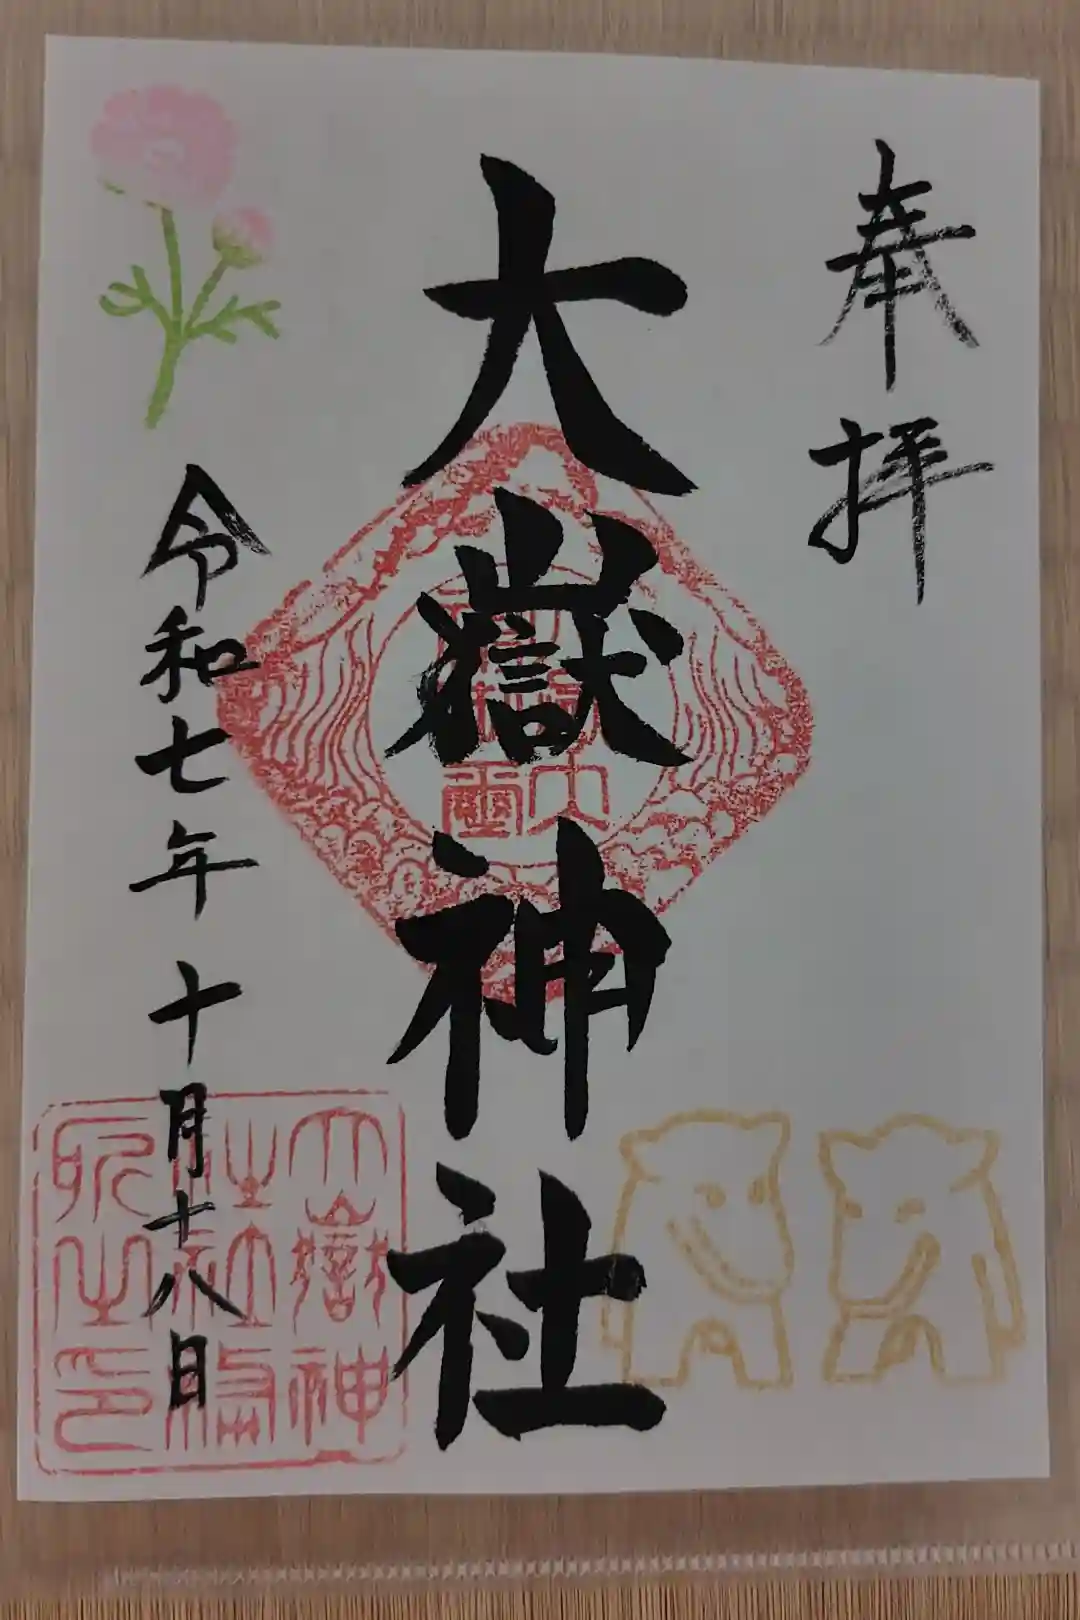 奉拝
大嶽神社
令和七年十月十八日
大嶽神
社社務
所之印